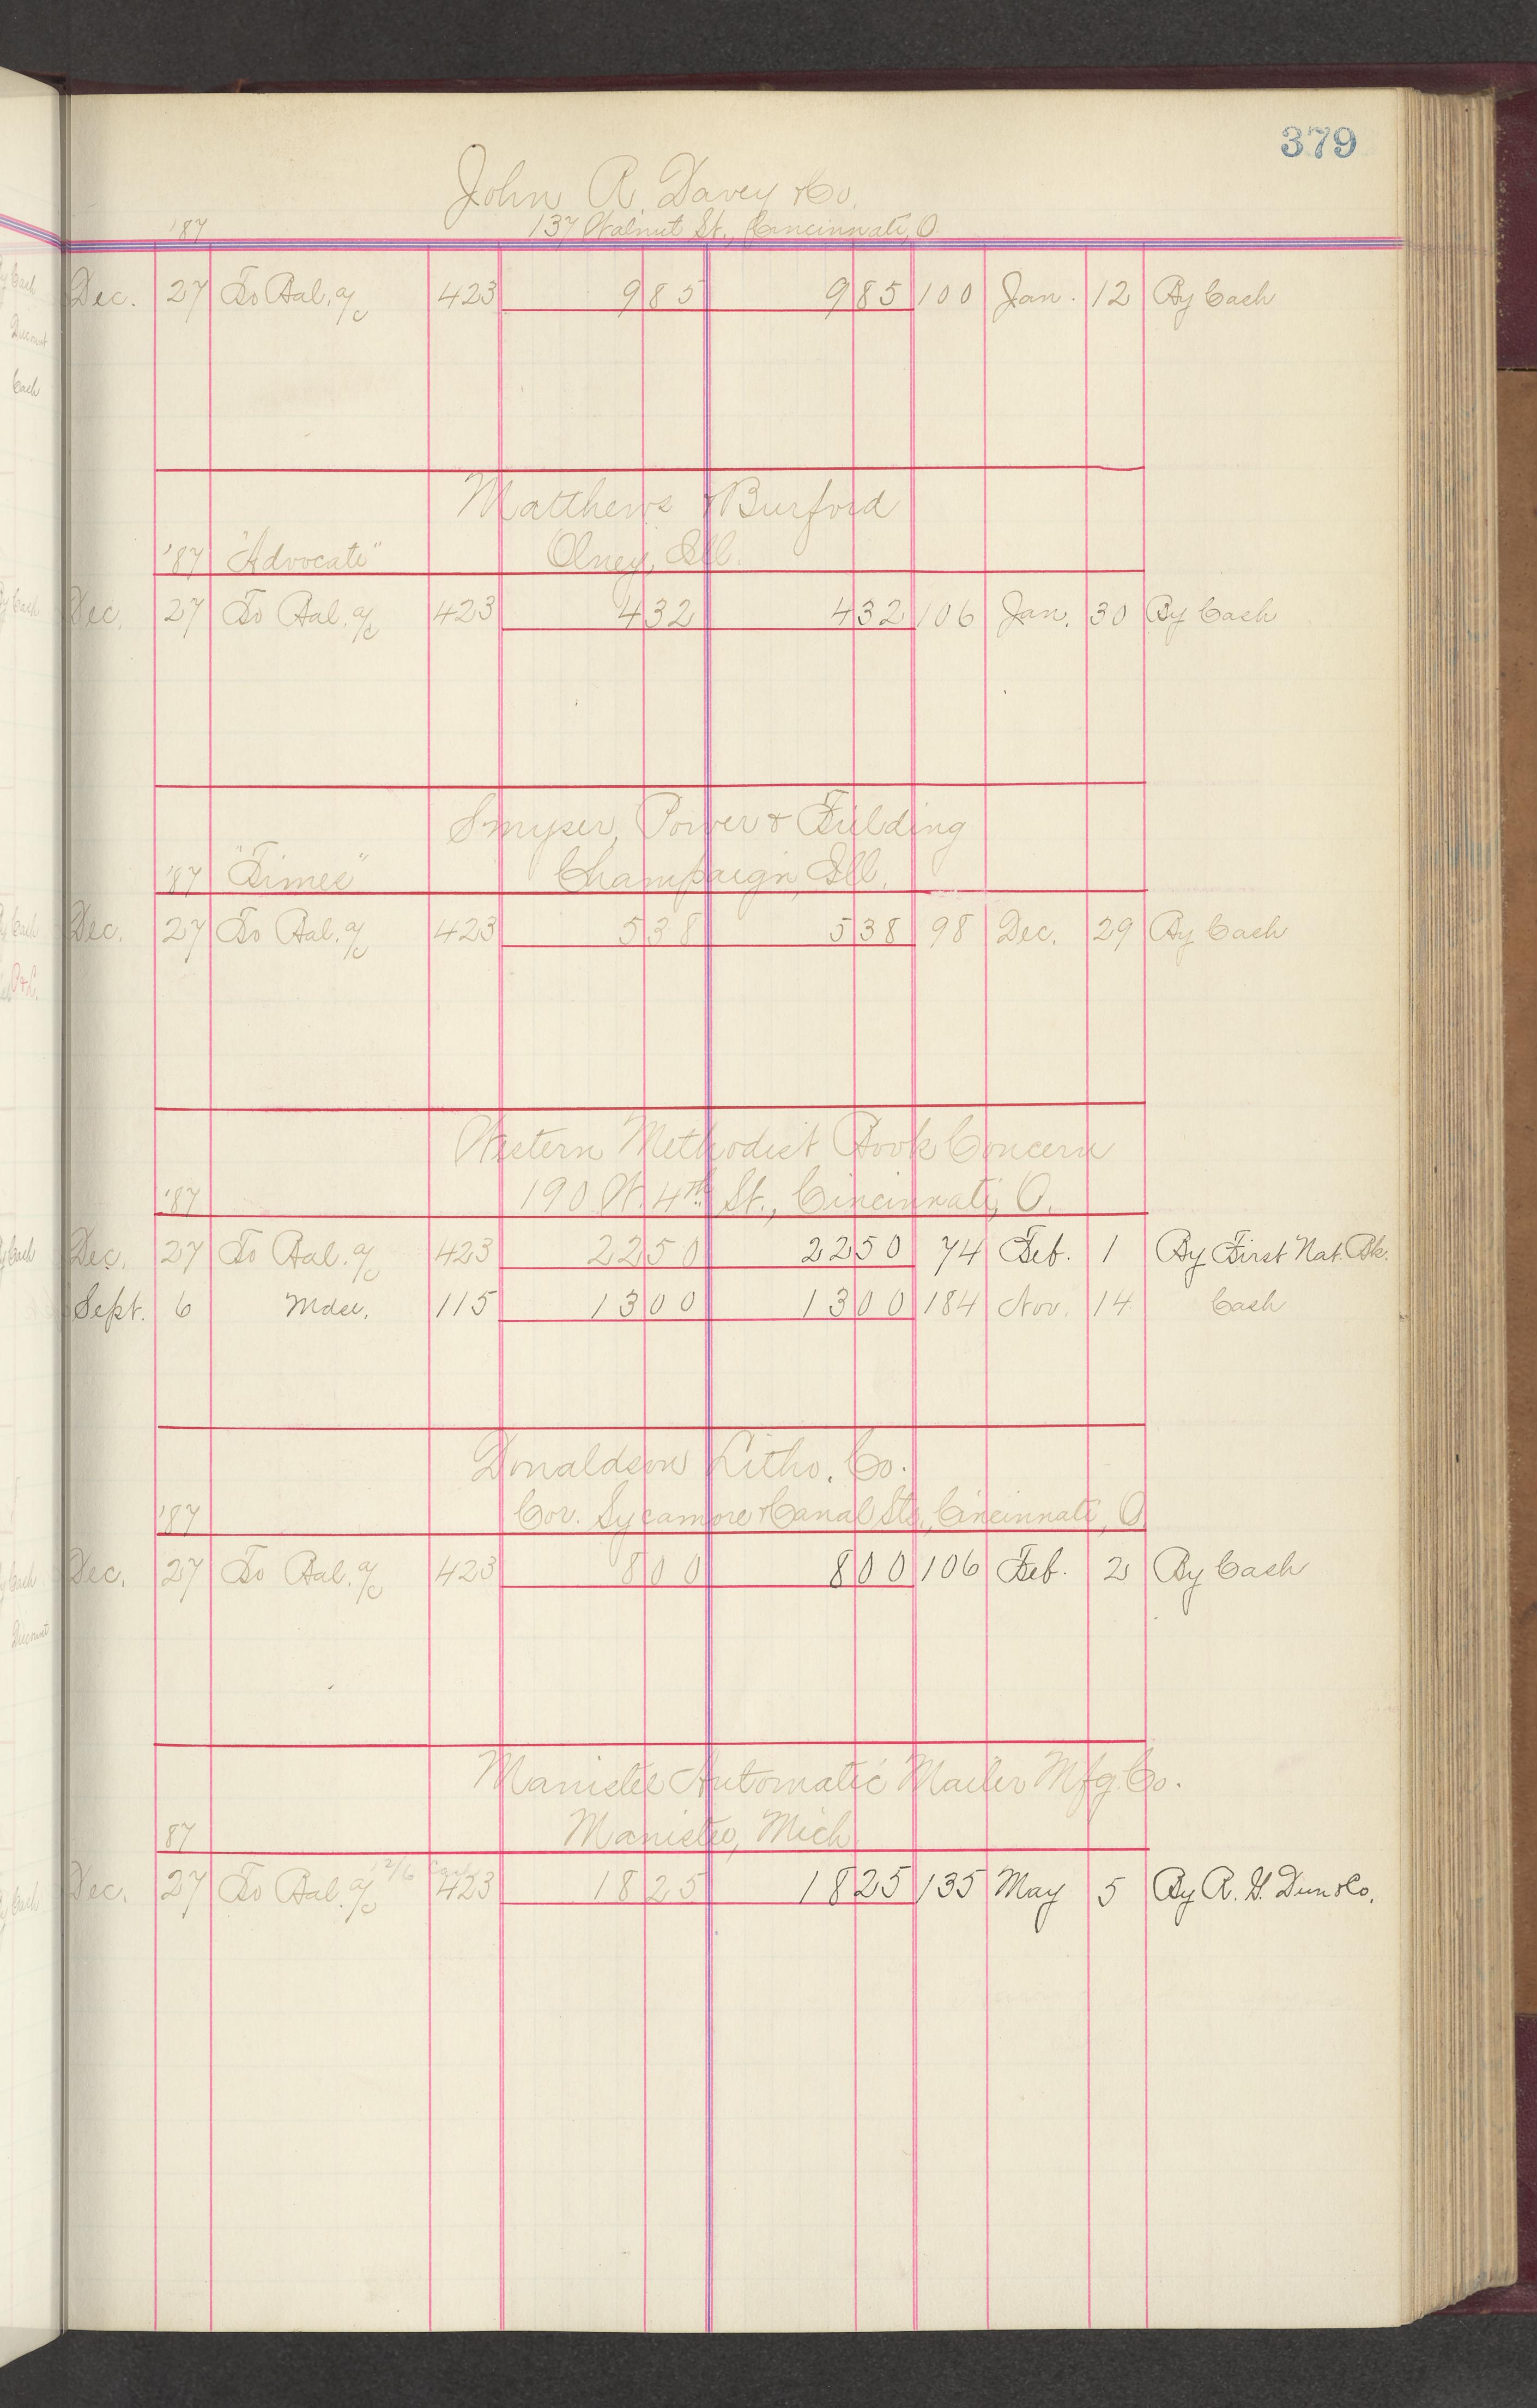 379
John R. Davey & Co.
'87 137 Walnut St., Cincinnati, O.
Dec. 27 To Bal. a/c 423 985 985 100 Jan. 12 By Cash
Matthews & Burford
'87 "Advocate" Olney, Ill.
Dec. 27 To Bal. a/c 423 432 432 106 Jan. 30 By Cash
Smyser, Power & Fielding
'87 "Times" Champaign, Ill.
Dec. 27 To Bal. a/c 423 538 538 98 Dec. 29 By Cash
Western Methodist Book Concern
'87 190 W. 4th St., Cincinnati, O.
Dec. 27 To Bal. a/c 423 2250 2250 74 Feb. 1 By First Nat. Bk.
Sept. 6 Mdse. 115 1300 1300 184 Nov. 14 Cash
Donaldson Litho. Co.
'87 Cor. Sycamore & Canal Sts., Cincinnati, O
Dec. 27 To Bal. a/c 423 800 800 106 Feb. 2 By Cash
Manistee Automatic Mailer Mfg. Co.
87 Manistee, Mich
Dec. 27 To Bal. a/c 423 1825 1825 135 May 5 By R. G. Dun & Co.